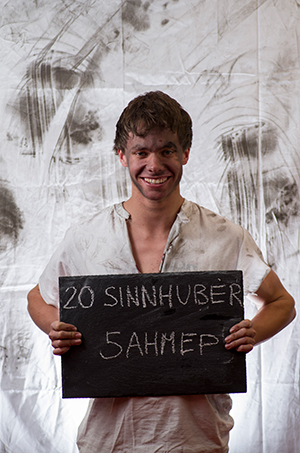 20 SINNHUBER
5AHMEP